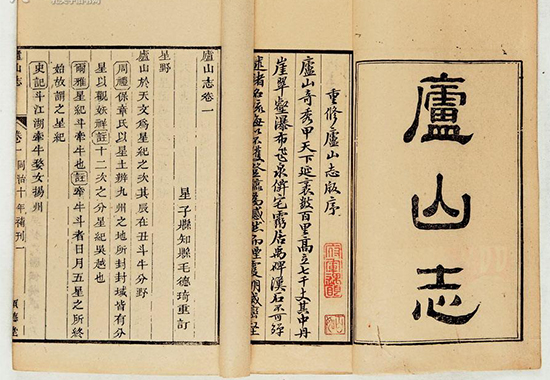 廬山志
重修廬山志版序
廬山奇秀甲天下延袤數百里高立七千丈其中丹
崖翠壑瀑布飛泉併宅靈居禹碑漢石不可
述諸名流
廬山志卷一
星子縣知縣毛德琦重訂
星野
廬山於天文爲星紀之次其辰在丑斗牛分野
周禮保章氏以星土辨九州之地所封封域皆有分
星以觀妖祥註十二次之分星紀吳越也
爾雅星紀斗牽牛也註牽牛斗者日月五星之所終
始故謂之星紀
史記斗江湖牽牛婺女揚州
廬山志 卷一 同治十年補刊 一 順德堂